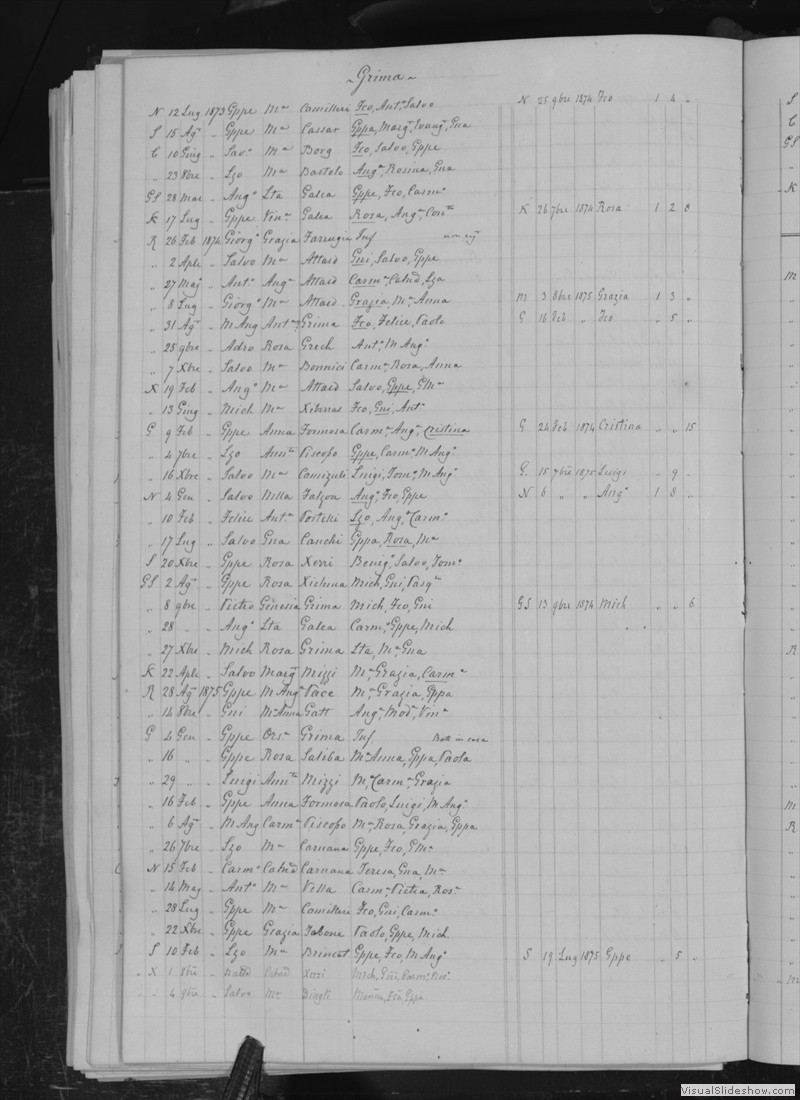 Grima
N 12 Lug 1873 Gppe Ma Camilleri Fco, Anta, Salvo N 25 9bre 1874 Fco 1 4 "
S 15 Ago " Gppe Ma Cassar Gppa, Marga, Evanga, Gna
C 10 Giug " Sav.e Ma Borg Fco, Salvo, Gppe
" 23 8bre " Lzo Ma Bartolo Anga, Rosina, Gna
GS 28 Mar " Ango Lta Galea Gppe, Fco, Carmo
K 17 Lug " Gppe Vina Galea Rosa, Anga, K 26 7bre 1874 Rosa 1 2 8
R 26 Feb 1874 Giorgo Grazia Farrugia Inf
" 2 Aple " Salvo Ma Attard Gni, Salvo, Gppe
" 27 Mag " Anto Anga Attard Carmo, Lzo
" 8 Lug " Giorgo Ma Attard Grazia, Ma, Anna M 3 8bre 1875 Grazia 1 3 "
" 31 Ago " M Ang Anta Grima Fco, Felice, Paolo G 16 Feb " Fco " 5 "
" 25 9bre " Rosa Grech Anta, M Anga
" 7 Xbre " Salvo Ma Bonnici Carma, Rosa, Anna
X 19 Feb " Ango Ma Attard Salvo, Gppe, EMa
" 13 Giug " Mich Ma Fco, Gni, Anto
G 9 Feb " Gppe Anna Formosa Carma, Anga, Cristina G 24 Feb 1874 Cristina " " 15
" 4 7bre " Lzo Annta Piscopo Gppe, Carma, M Anga
" 16 Xbre " Salvo Ma Camizuli Luigi, Toma, M Ango G. 15 7bre 1875 Luigi " 9 "
N 4 Gen " Salvo Nlla Falzon Ango, Fco, Gppe N 6 " " Ango 1 8 "
" 10 Feb " Felice Anta Portelli Lzo, Ango, Carmo
" 17 Lug " Salvo Gna Cauchi Gppa, Rosa, Ma
S 20 Xbre " Gppe Rosa Xerri Benigo, Salvo, Tomo
GS 2 Ago " Gppe Rosa Xicluna Mich, Gni, Pasqe
" 8 9bre " Pietro Genesia Grima Mich, Fco, Gni GS 13 9bre 1874 Mich " " 6
" 28 " " Ango Lta Galea Carmo, Gppe, Mich
" 27 Xbre " Mich Rosa Grima Lta, Ma, Gna
K 22 Aple " Salvo Marga Mizzi Ma, Grazia, Carma
R 28 Ago 1875 Gppe M Anga Pace Ma, Grazia, Gppa
" 14 8bre " Gni Ma Anna Gatt Anga, Moda, Vina
G 4 Gen " Gppe Orsa Grima Inf Batt in casa
" 16 " " Gppe Rosa Saliba Ma Anna, Gppa, Paola
" 29 " " Luigi Annta Mizzi Ma, Carma, Grazia
" 16 Feb " Gppe Anna Formosa Paolo, Luigi, M Ango
" 6 Ago " M Ang Carma Piscopo Ma, Rosa, Grazia, Gppa
" 26 7bre " Lzo Ma Caruana Gppe, Fco, EMa
N 15 Feb " Carmo Catnd Caruana Teresa, Gna, Ma
" 14 Mag " Anto Ma Vella Carma, Pietra, Rosa
" 28 Lug " Gppe Ma Camilleri Fco, Gni, Carmo
" 22 Xbre " Gppe Grazia Tabone Paolo, Gppe, Mich
S 10 Feb " Lzo Ma Brincat Gppe, Fco, M Ango S 19 Lug 1875 Gppe " 5 "
X 1 8bre " Catnd Xerri Mich, Gni, Carmo
" 4 9bre " Salvo Ma Gppa
VisualSlideshow.com